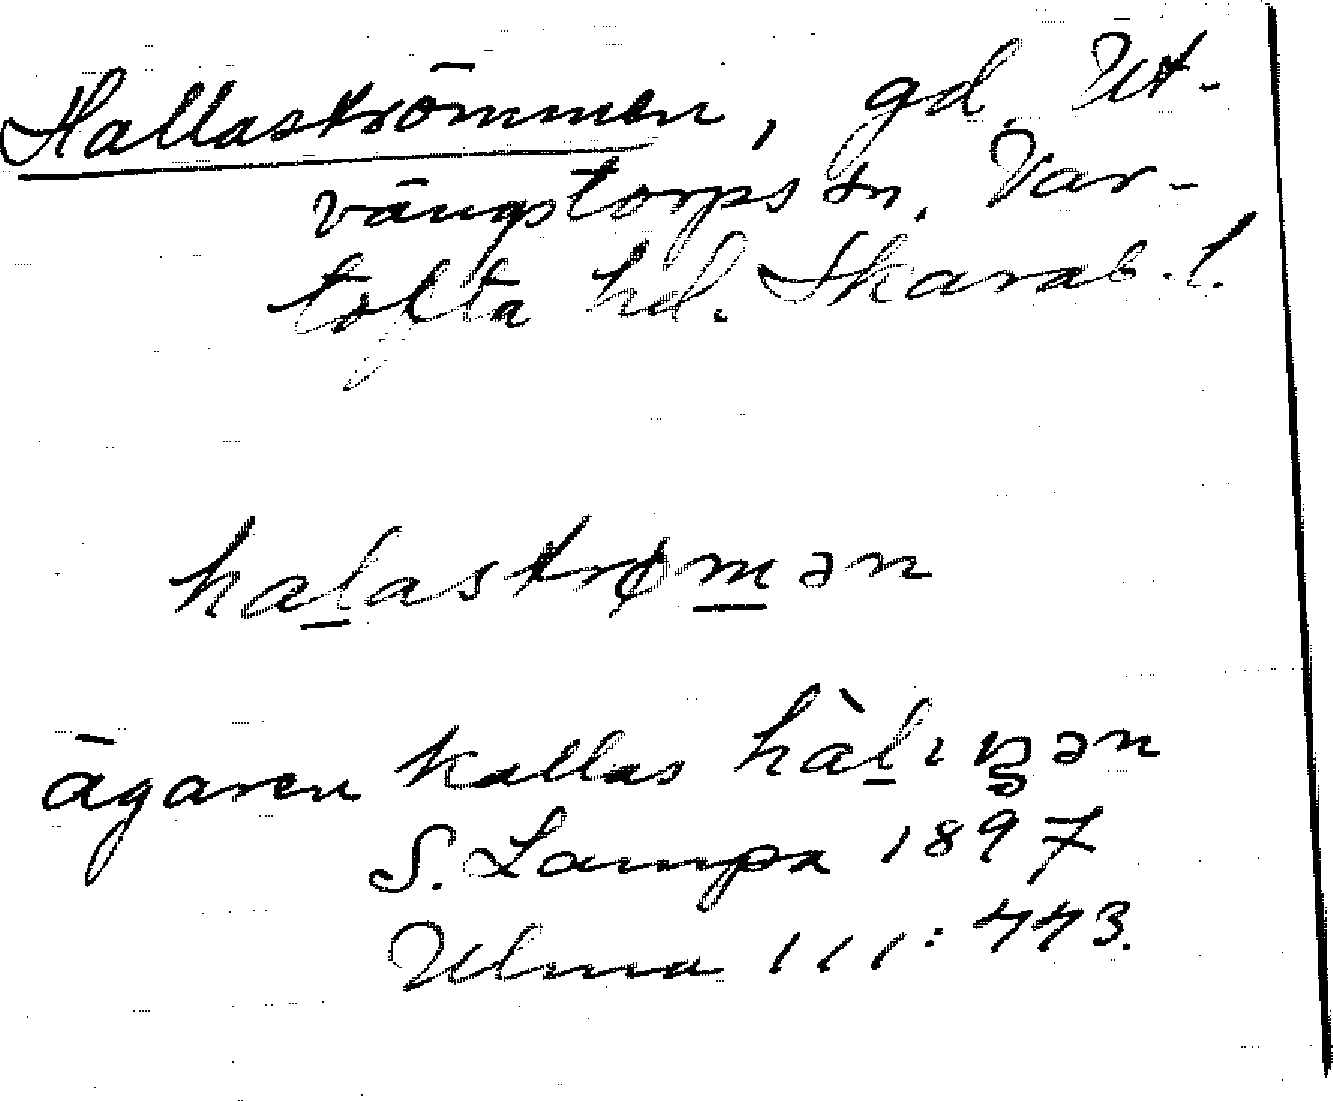 Hallaströmmen, gd, Ut-
vängstorps sn. Var-
tofta hd. Skarab. l.
halastrømən
ägaren kallas hàlıŋən
S. Lampa 1897
Ulma 111:443.